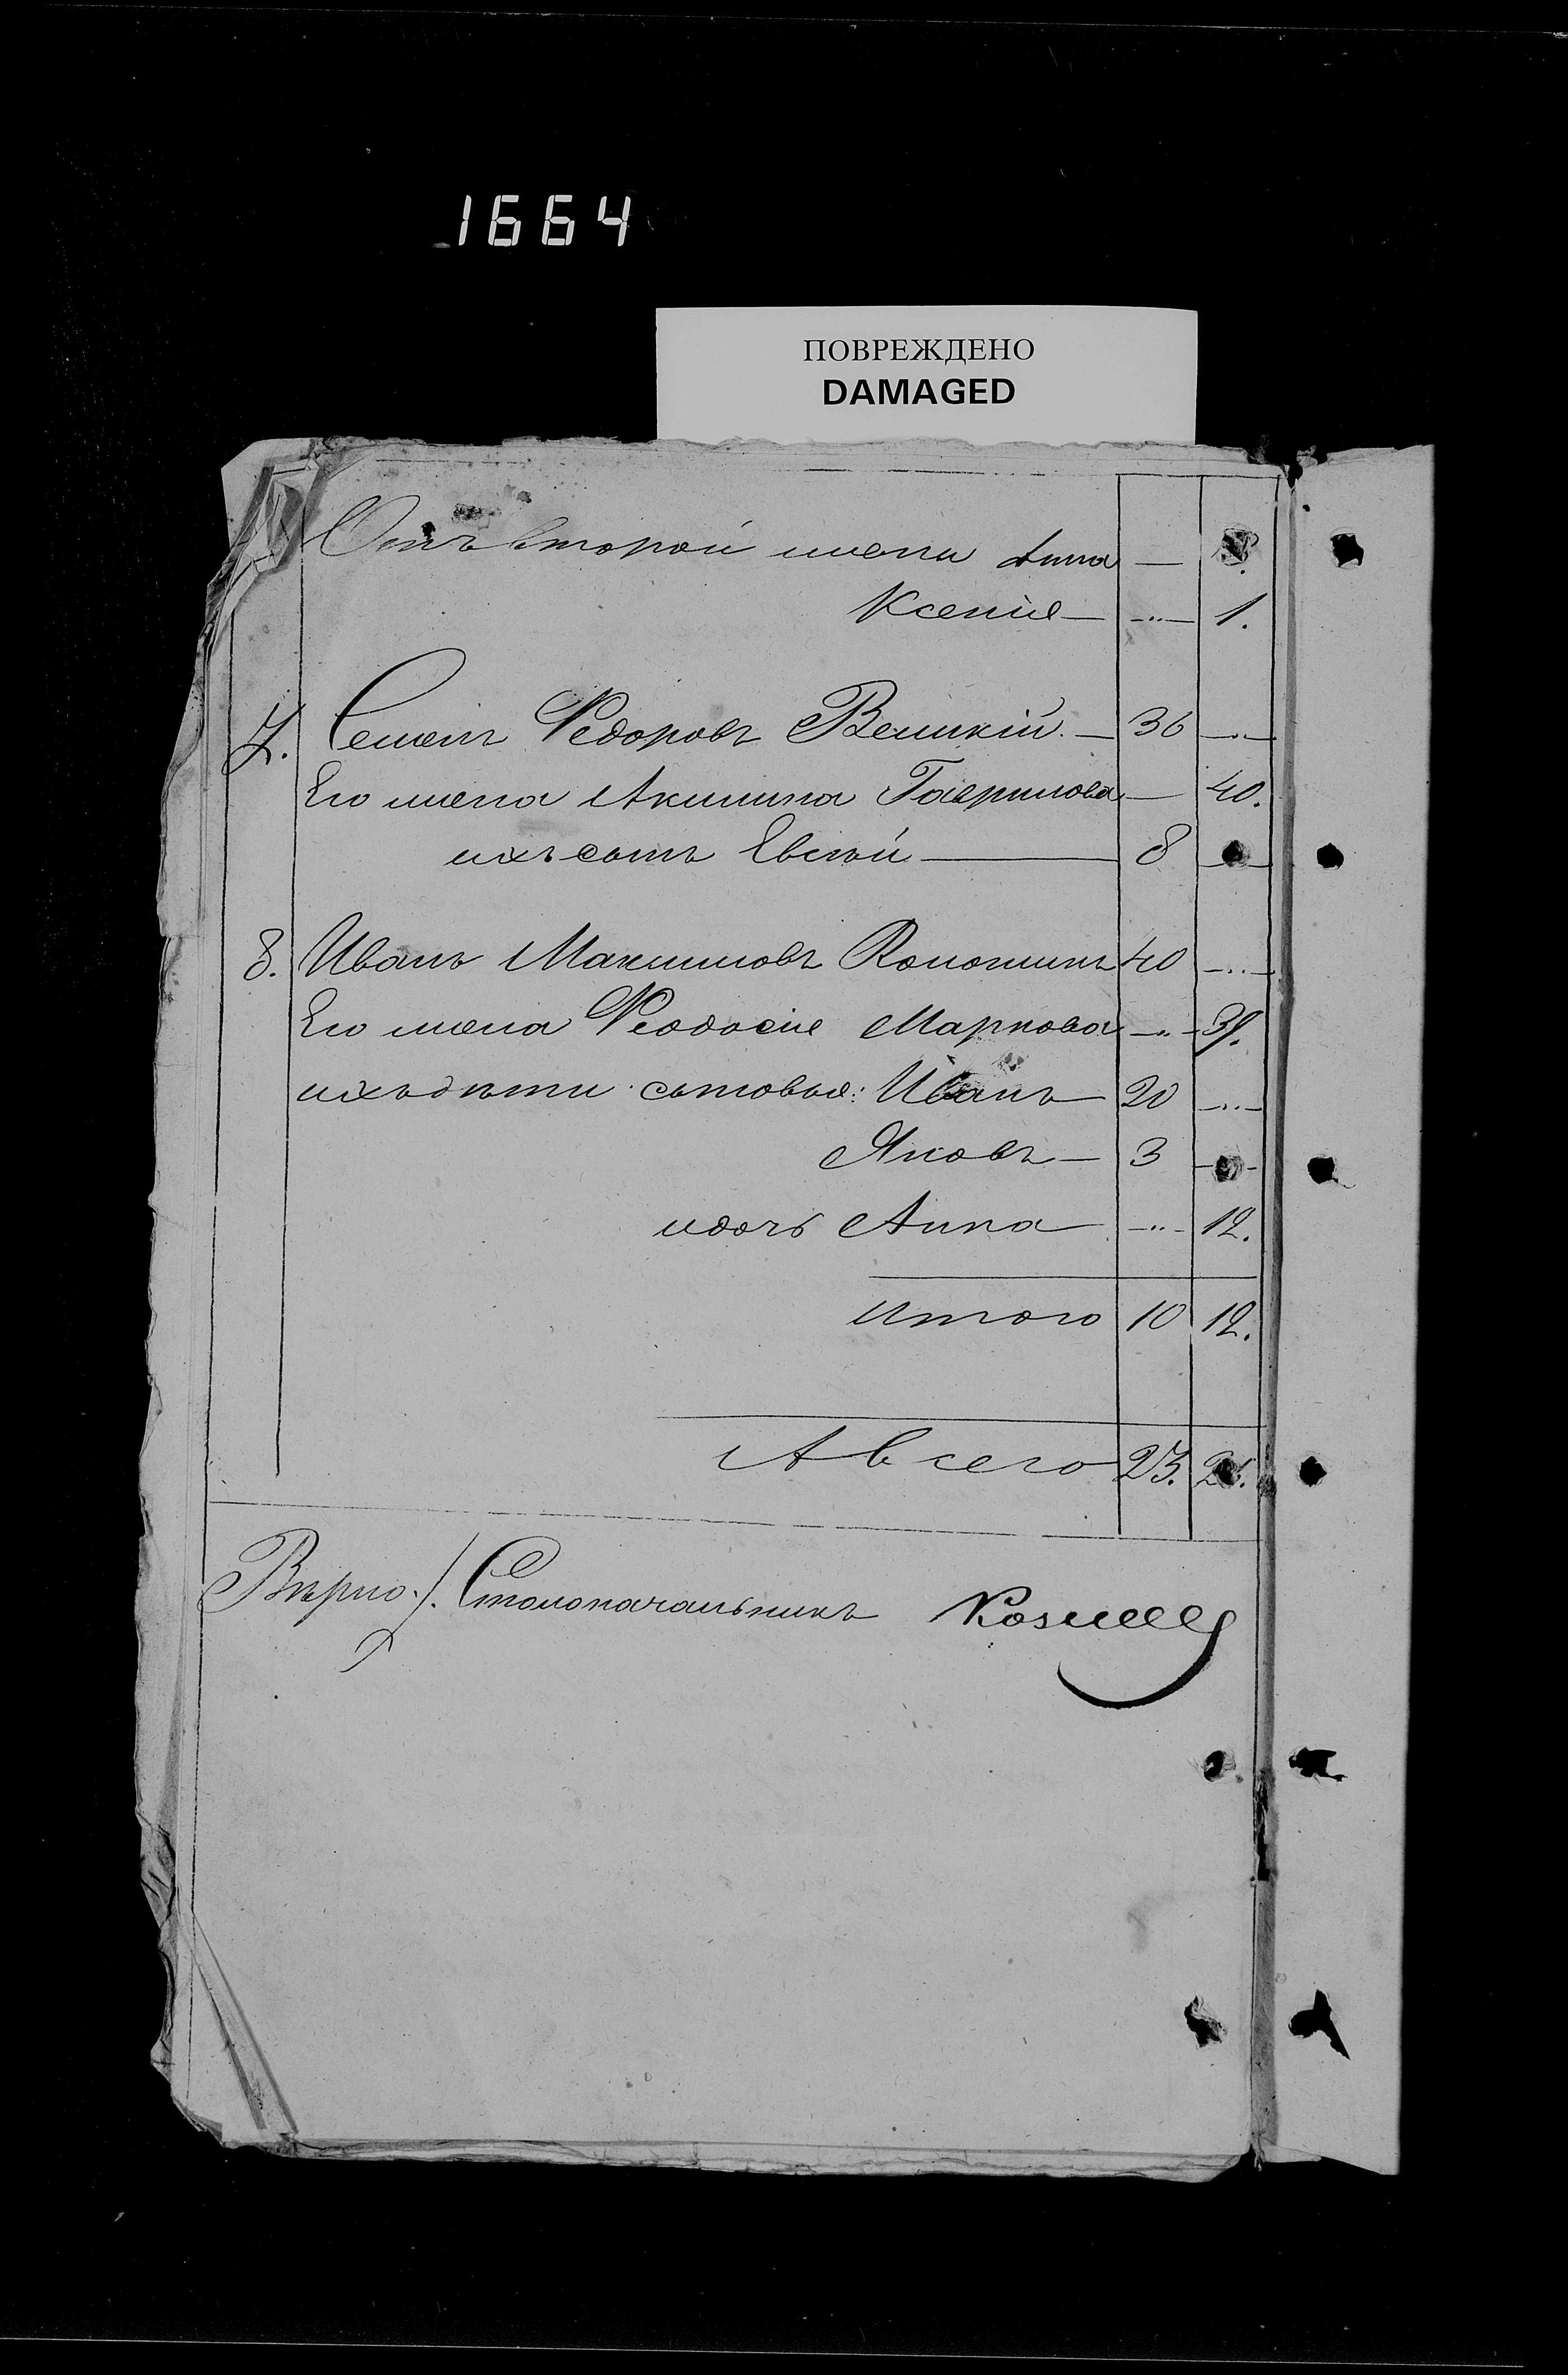 1664
ПОВРЕЖДЕНО
DAMAGED
Отъ второй жены Анна —
Ксенія — —"— 1.
7. Семенъ Ѳедоровъ Великій. — 36 —"—
Его жена Акилина Гаврилова — 40.
ихъ сынъ Евсѣй — 8 —
8. Иванъ Максимовъ Кононинъ 40 —"—
Его жена Ѳеодосія Маркова —"— 39.
ихъ дѣти сыновья: Иванъ — 20 —"—
Яковъ — 3 —
и дочь Анна — —"— 12.
Итого 10 12.
А всего 23.
Вѣрно: Столоначальникъ